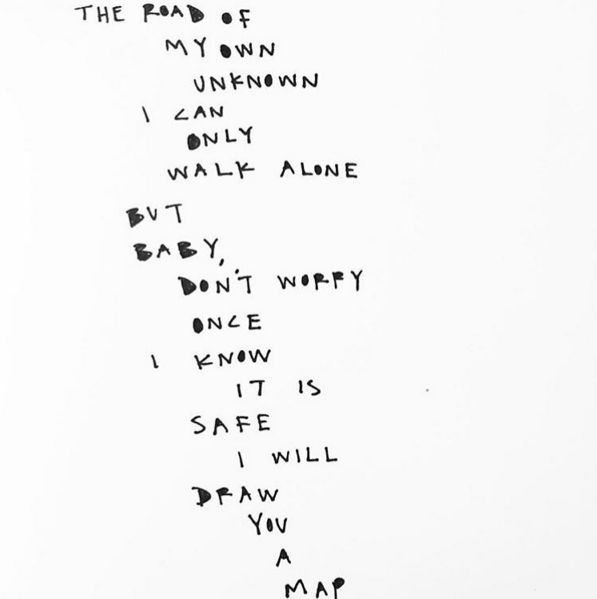 THE ROAD OF
MY OWN
UNKNOWN
I CAN
ONLY
WALK ALONE
BUT
BABY,
DON'T WORRY
ONCE
I KNOW
IT IS
SAFE
I WILL
DRAW
YOU
A
MAP